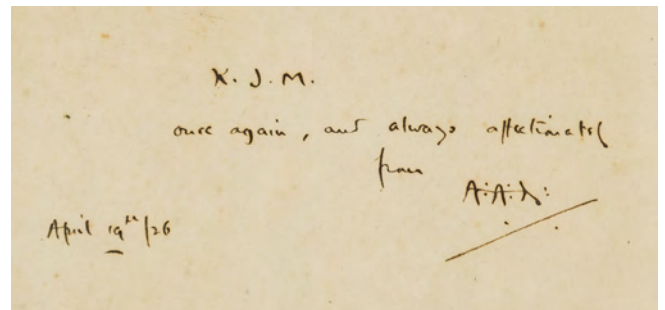 K. J. M.
once again, and always affectionately
from
A.A.M.
April 19th/26